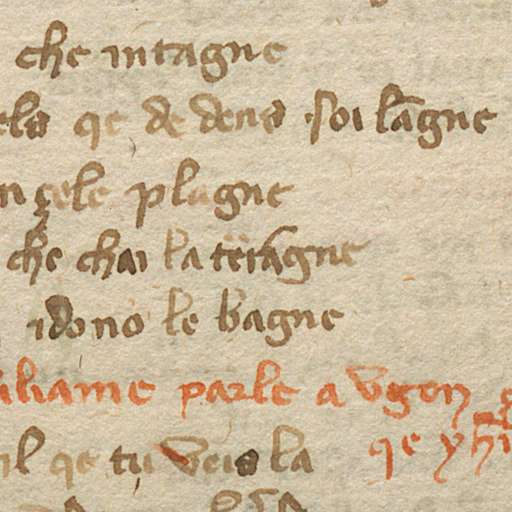 che intagne
els qe de dens soi lãgne
çele plagne
che chai la terãgne
idono le bagne
uliame parle a Vgon
il qe tu veis la qe yh